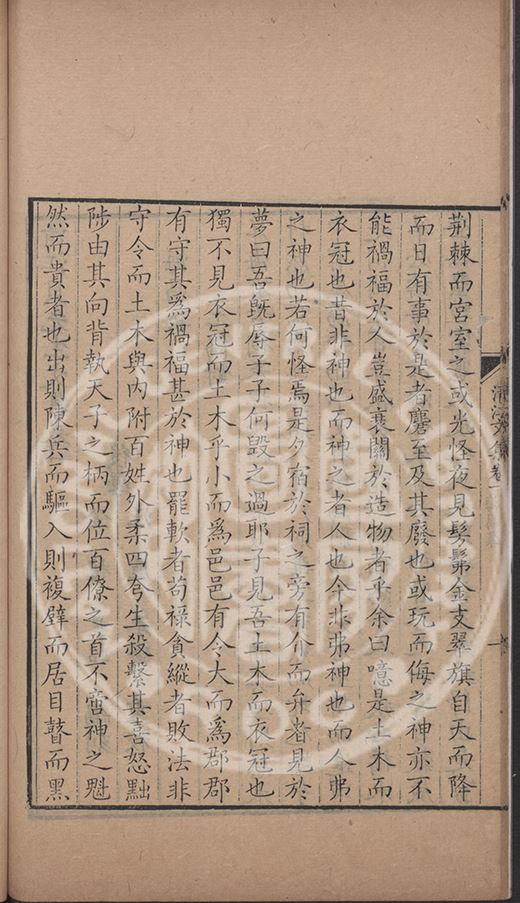 荆棘而宮室之或光怪夜見髣髴金支翠旗自天而降
而日有事於是者麏至及其廢也或玩而侮之神亦不
能禍福於人豈盛衰關於造物者乎余曰噫是土木而
衣冠也昔非神也而神之者人也今非弗神也而人弗
之神也若何怪焉是夕宿於祠之旁有介而弁者見於
夢曰吾旣辱子子何毀之過耶子見吾土木而衣冠也
獨不見衣冠而土木乎小而爲邑邑有令大而爲郡郡
有守其爲禍福甚於神也罷軟者苟祿貪縱者敗法非
守令而土木與內附百姓外柔四夸生殺繫其喜怒黜
陟由其向背執天子之柄而位百僚之首不啻神之魁
然而貴者也出則陳兵而驅入則複壁而居目瞽而黑
清江
卷一